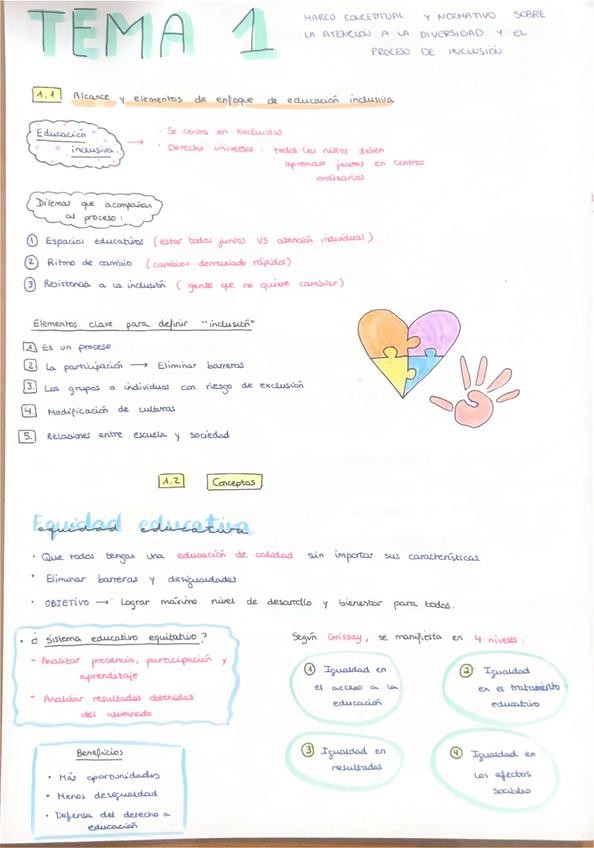 TEMA 1
MARCO CONCEPTUAL Y NORMATIVO SOBRE
LA ATENCIÓN A LA DIVERSIDAD Y EL
PROCESO DE INCLUSIÓN
1.1 Alcance y elementos de enfoque de educación inclusiva
Educación
inclusiva
→ · Se centra en excluidos
· Derecho universal : todos los niños deben
aprender juntos en centros
ordinarios
Dilemas que acompañan
al proceso :
① Espacios educativos (estar todos juntos VS atención individual)
② Ritmo de cambio (cambios demasiado rápidos)
③ Resistencia a la inclusión (gente que no quiere cambiar)
Elementos clave para definir "inclusión"
1. Es un proceso
2. La participación → Eliminar barreras
3. Los grupos o individuos con riesgo de exclusión
4. Modificación de culturas
5. Relaciones entre escuela y sociedad
1.2 Conceptos
Equidad educativa
· Que todos tengas una educación de calidad sin importar sus características
· Eliminar barreras y desigualdades
· OBJETIVO → Lograr máximo nivel de desarrollo y bienestar para todos.
· ¿ Sistema educativo equitativo ?
- Analizar presencia, participación y
aprendizaje
- Analizar resultados obtenidos
del alumnado
Beneficios
· Más oportunidades
· Menos desigualdad
· Defensa del derecho a
educación
Según Grissay, se manifiesta en 4 niveles :
① Igualdad en
el acceso a la
educación
② Igualdad
en el tratamiento
educativo
③ Igualdad en
resultados
④ Igualdad en
los efectos
sociales